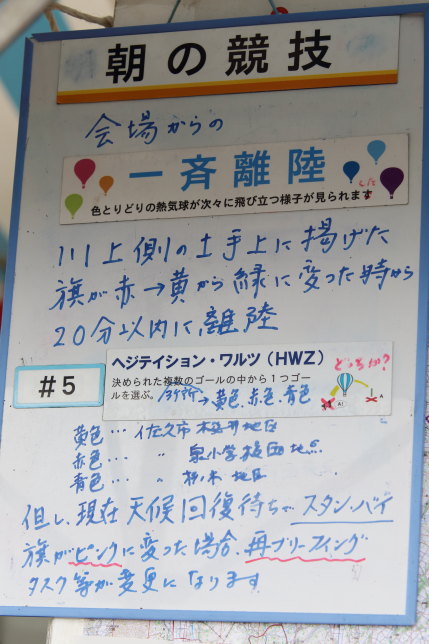 朝の競技
会場からの
一斉離陸
色とりどりの熱気球が次々に飛び立つ様子が見られます
川上側の土手上に掲げた
旗が赤→黄から緑に変った時から
20分以内に離陸
#5
ヘジテイション・ワルツ（HWZ）
決められた複数のゴールの中から1つゴ
ールを選ぶ。 3ヶ所→黄色、赤色、青色
どっちか?
黄色… 佐久市 桜井地区
赤色… 〃 泉小学校
青色… 〃 地区
但し、現在 天候回復待ちでスタンバイ
旗がピンクに変った場合、再ブリーフィング
タスク等が変更になります